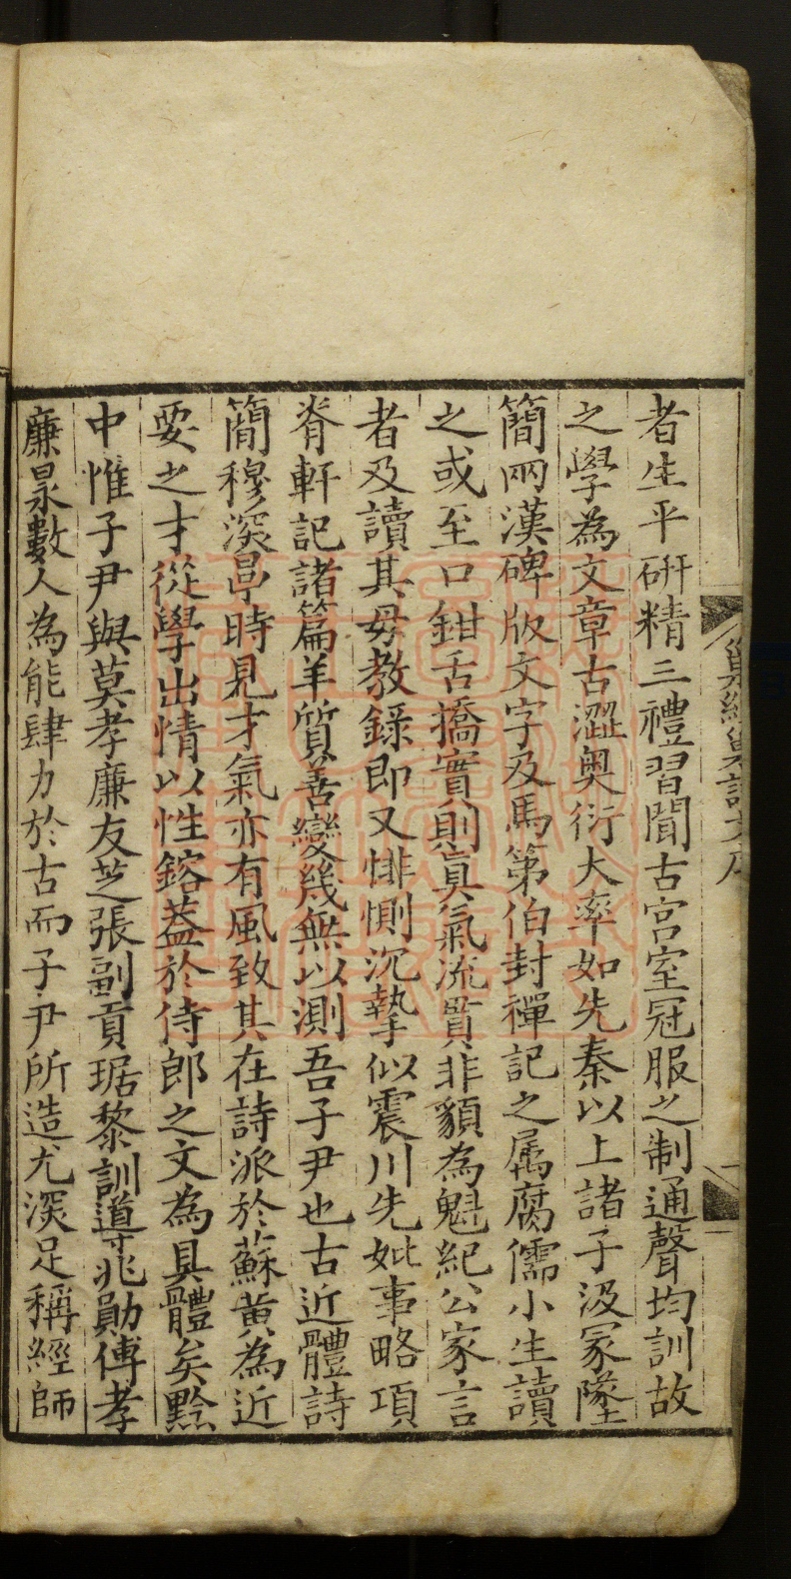 者生平硏精三禮習聞古宮室冠服之制通聲均訓故
之學為文章古澀奧衍大率如先秦以上諸子汲冢墬
簡兩漢碑版文字及馬第伯封禪記之属腐儒小生讀
之或至口鉗舌撟實則真氣流貫非貌為魁紀公家言
者及讀其母教錄即又悱惻沉摯似震川先妣事略項
脊軒記諸篇羊質善變幾無以測吾子尹也古近體詩
簡穆深𠅘時見才氣亦有風致其在詩派於蘇黄為近
要之才從學出情以性鎔葢於侍郎之文為具體矣黔
中惟子尹與莫孝廉友芝張副貢琚黎訓導兆勛傅孝
廉㫤數人為能肆力於古而子尹所造尤深足稱經師
巢經巢詩文序
一